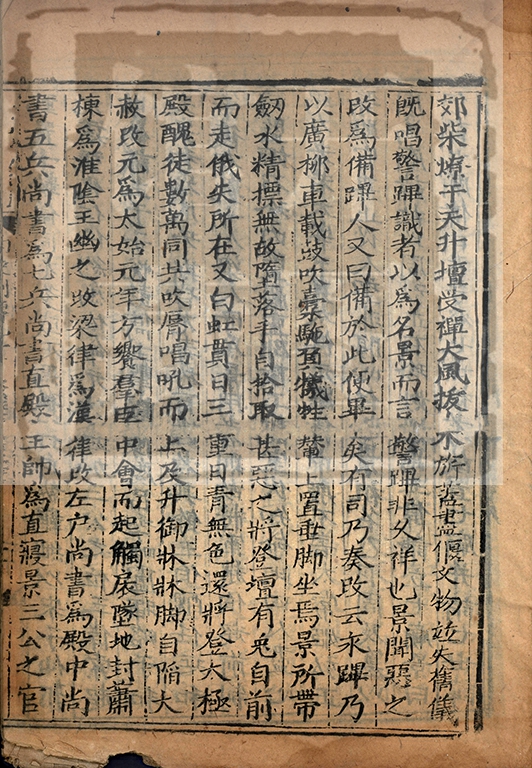 郊柴燎于天升壇受禪大風拔木旂蓋盡偃文物竝失舊儀
旣唱警蹕識者以爲名景而言警蹕非久祥也景聞惡之
改爲備蹕人又曰備於此便畢矣有司乃奏改云永蹕乃
以廣柳車載鼓吹橐駞負犧牲輦上置垂脚坐焉景所帶
劒水精摽無故墮落手自拾取甚惡之將登壇有兎自前
而走俄失所在又白虹貫日三重日青無色還將登太極
殿醜徒數萬同共吹脣唱吼而上及升御牀牀脚自陷大
赦改元爲太始元年方饗羣臣中會而起觸扆墜地封蕭
棟爲淮陰王幽之改梁律爲漢律改左戶尚書爲殿中尚
書五兵尚書爲七兵尚書直殿主帥爲直寢景三公之官